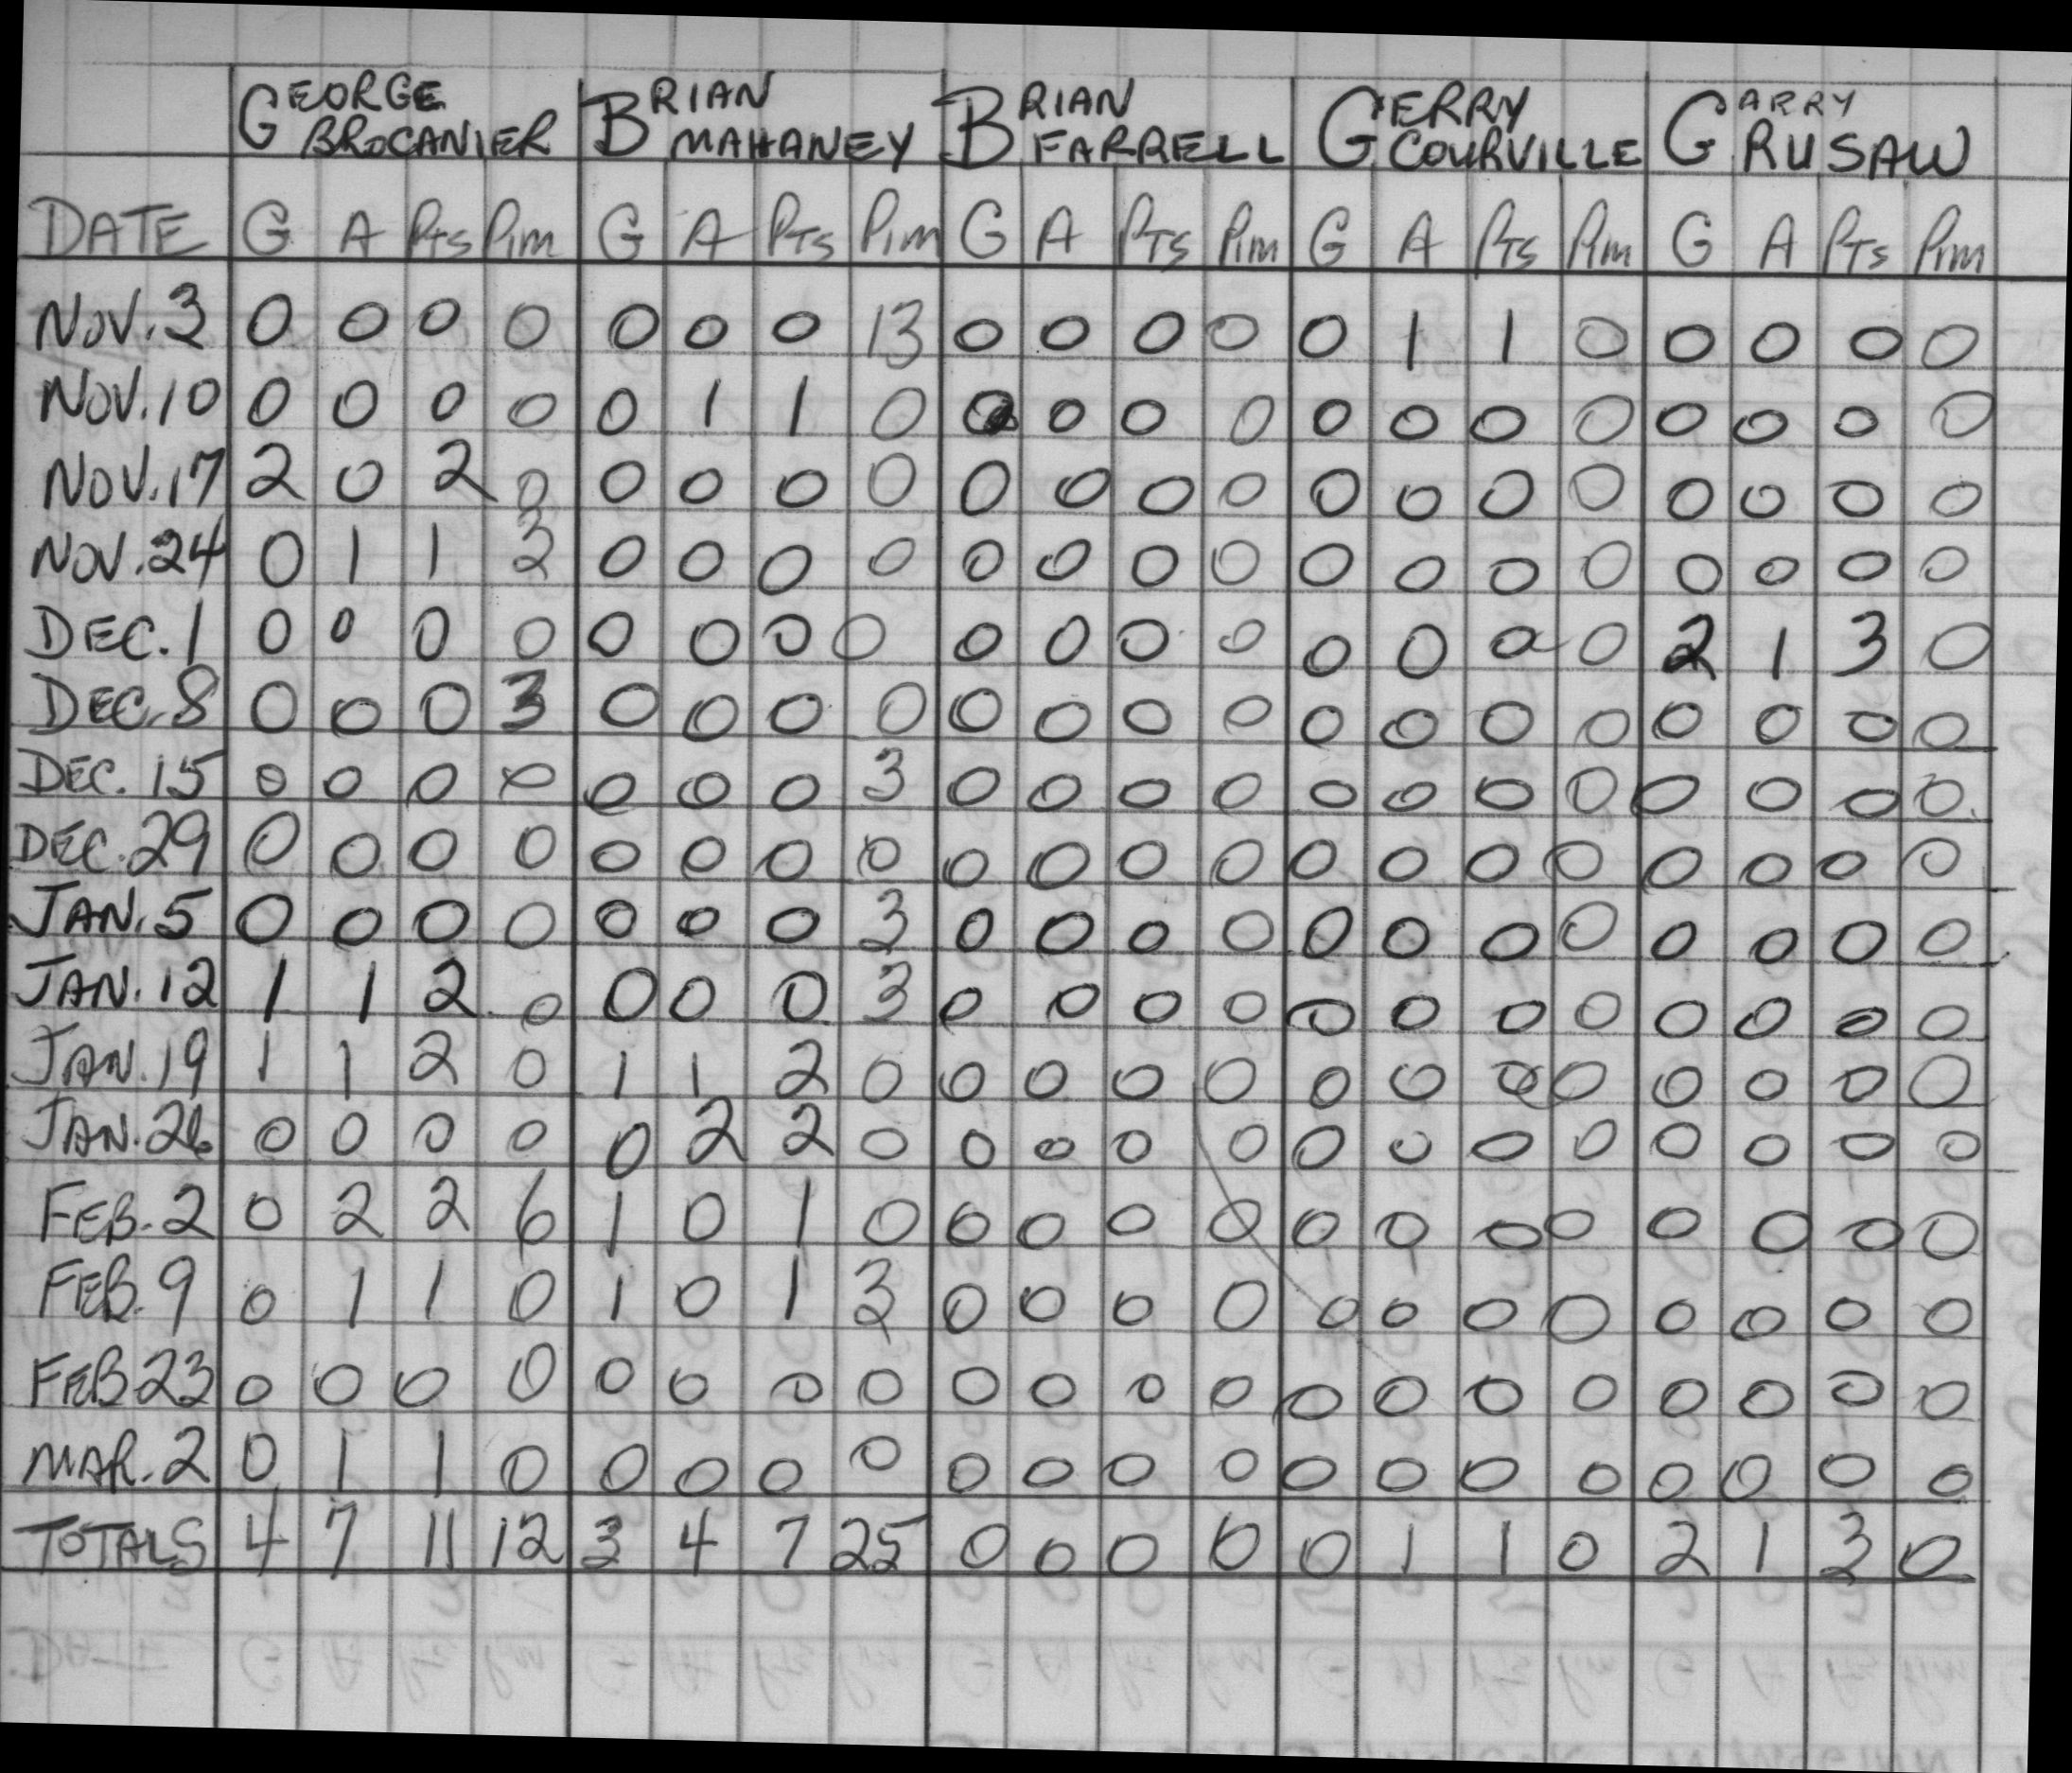 GEORGE BROCANIER BRIAN MAHANEY BRIAN FARRELL GERRY COURVILLE GARRY RUSAW
DATE G A PTS PIM G A PTS PIM G A PTS PIM G A PTS PIM G A PTS PIM
NOV. 3 0 0 0 0 0 0 0 13 0 0 0 0 0 1 1 0 0 0 0 0
NOV. 10 0 0 0 0 0 1 1 0 0 0 0 0 0 0 0 0 0 0 0 0
NOV. 17 2 0 2 0 0 0 0 0 0 0 0 0 0 0 0 0 0 0 0 0
NOV. 24 0 1 1 3 0 0 0 0 0 0 0 0 0 0 0 0 0 0 0 0
DEC. 1 0 0 0 0 0 0 0 0 0 0 0 0 0 0 0 0 2 1 3 0
DEC. 8 0 0 0 3 0 0 0 0 0 0 0 0 0 0 0 0 0 0 0 0
DEC. 15 0 0 0 0 0 0 0 3 0 0 0 0 0 0 0 0 0 0 0 0
DEC. 29 0 0 0 0 0 0 0 0 0 0 0 0 0 0 0 0 0 0 0 0
JAN. 5 0 0 0 0 0 0 0 3 0 0 0 0 0 0 0 0 0 0 0 0
JAN. 12 1 1 2 0 0 0 0 3 0 0 0 0 0 0 0 0 0 0 0 0
JAN. 19 1 1 2 0 1 1 2 0 0 0 0 0 0 0 0 0 0 0 0 0
JAN. 26 0 0 0 0 0 2 2 0 0 0 0 0 0 0 0 0 0 0 0 0
FEB. 2 0 2 2 6 1 0 1 0 0 0 0 0 0 0 0 0 0 0 0 0
FEB. 9 0 1 1 0 1 0 1 3 0 0 0 0 0 0 0 0 0 0 0 0
FEB 23 0 0 0 0 0 0 0 0 0 0 0 0 0 0 0 0 0 0 0 0
MAR. 2 0 1 1 0 0 0 0 0 0 0 0 0 0 0 0 0 0 0 0 0
TOTALS 4 7 11 12 3 4 7 25 0 0 0 0 0 1 1 0 2 1 3 0